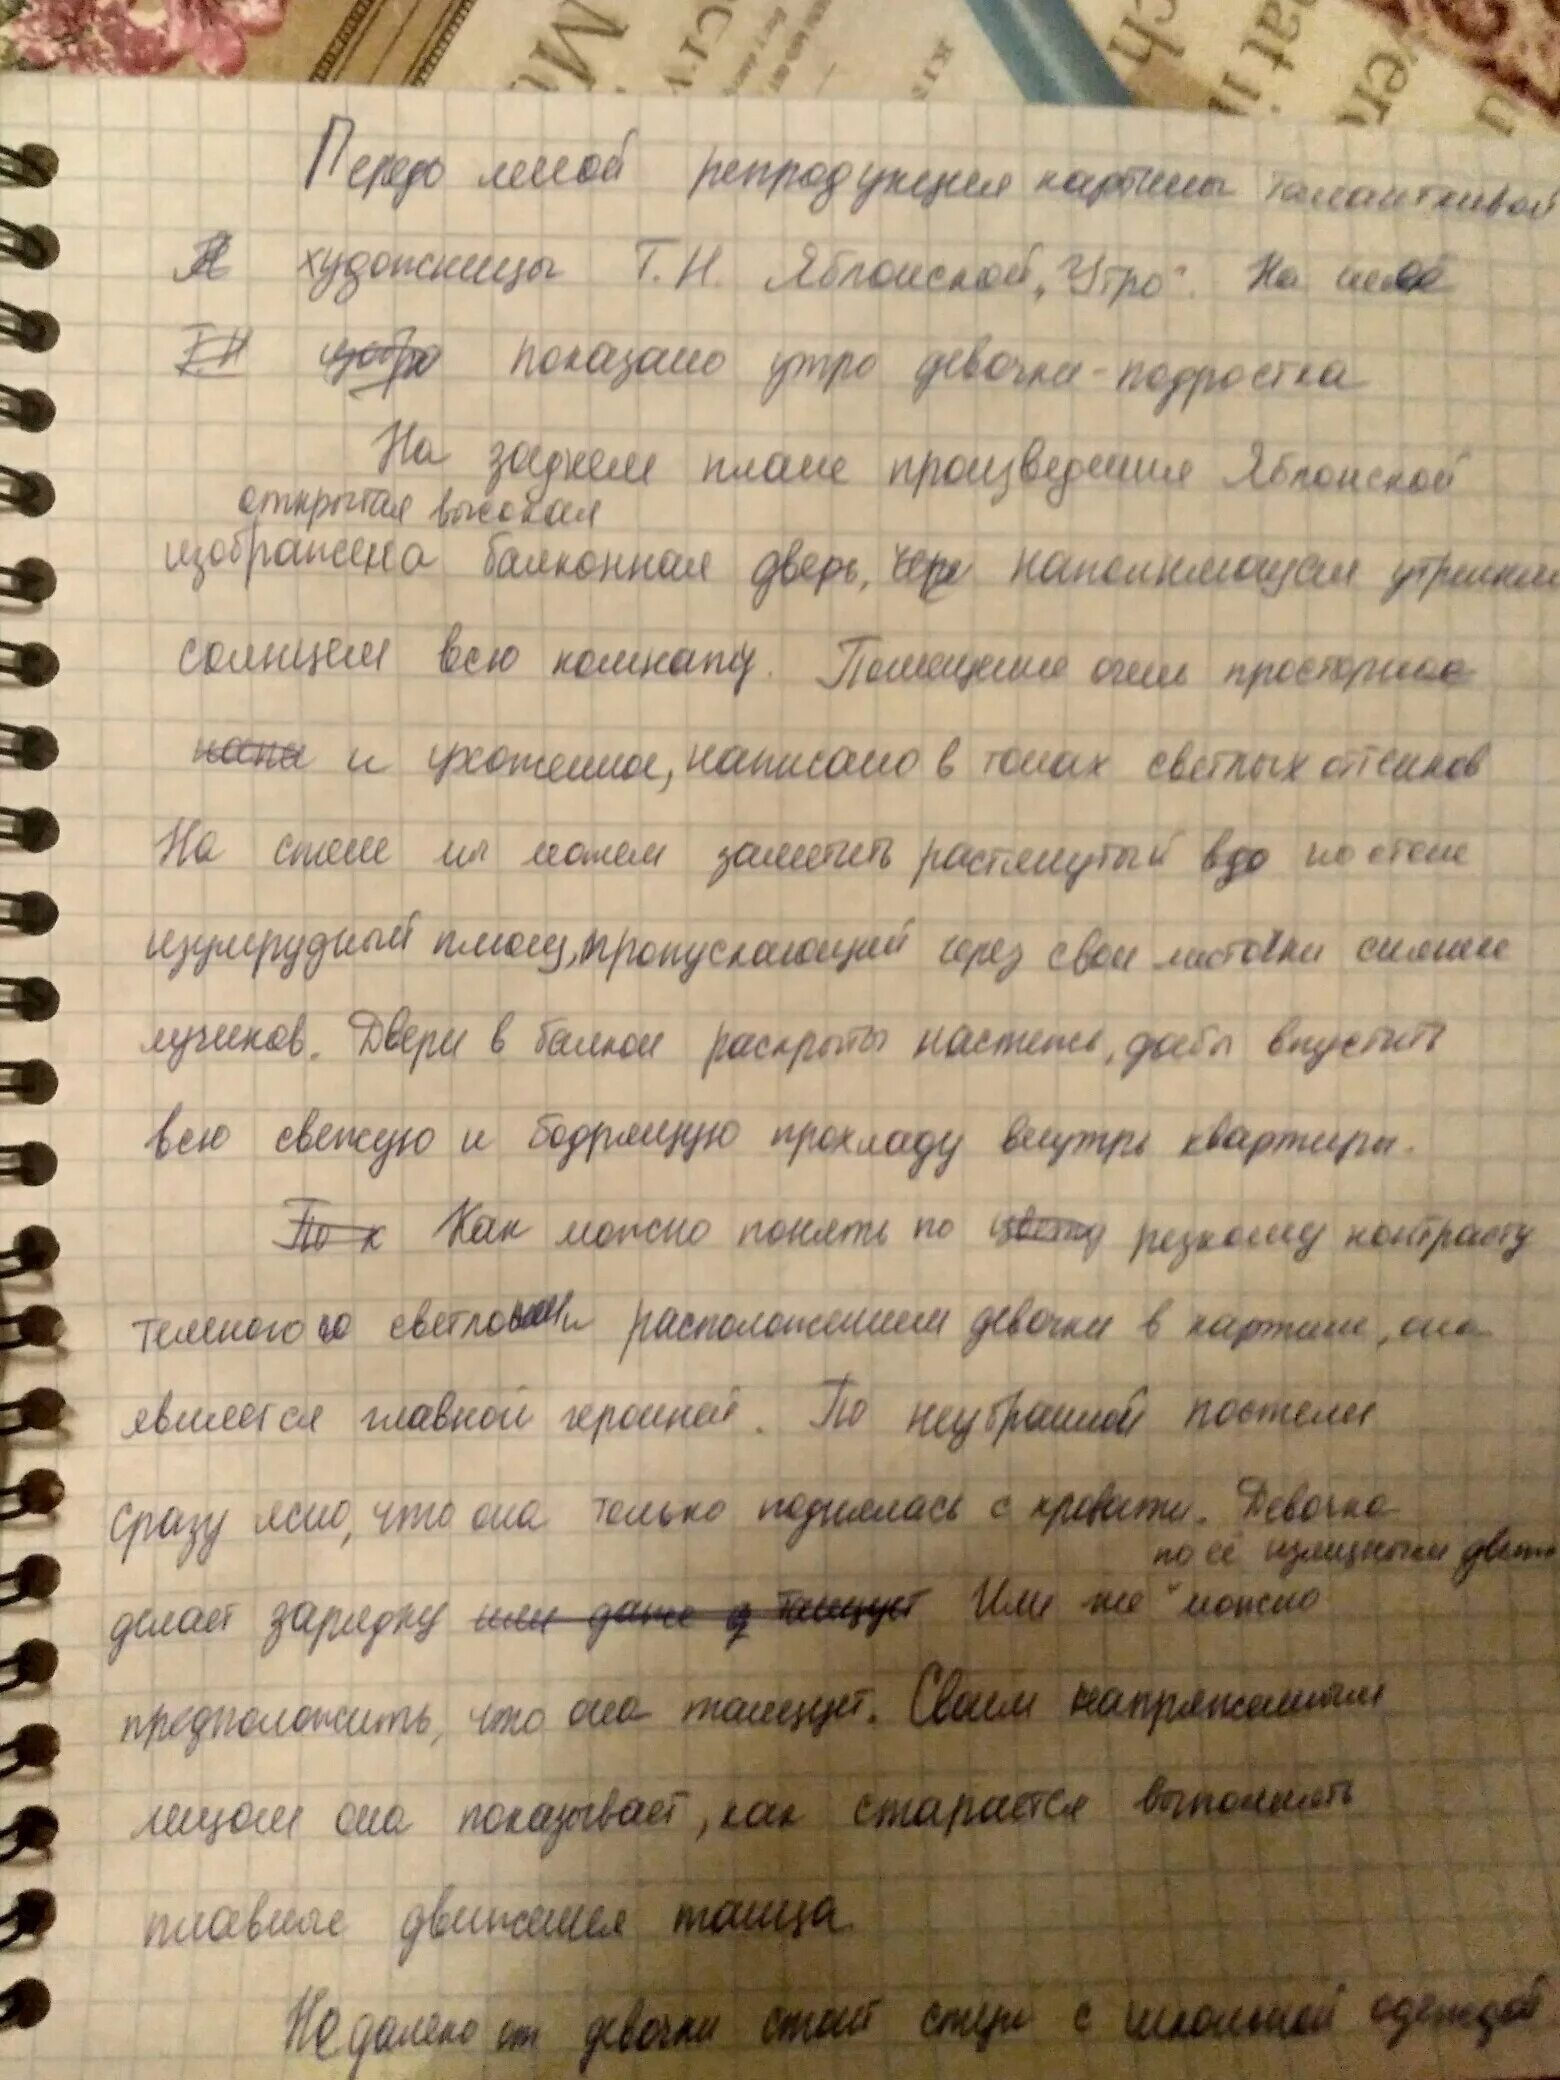 Передо мной репродукция картины талантливой
художницы Т.Н. Яблонской „Утро“. На ней
Т.Н показано утро девочки-подростка
На заднем плане произведения Яблонской
открытая высокая
изображена балконная дверь, чере наполняющая утренним
солнцем всю комнату. Помещение очень просторное
и ухоженное, написано в тонах светлых оттенков
На стене мы можем заметить растянутый вдо по стене
изумрудный плющ, пропускающий через свои листочки сияние
лучиков. Двери в балкон раскрыты настежь, дабы впустить
всю свежую и бодрящую прохладу внутрь квартиры.
По к Как можно понять по цвету резкому контрасту
темного со светло и расположением девочки в картине, она
является главной героиней. По неубранной постели
сразу ясно, что она только поднялась с кровати. Девочка
по её изящным движ
делает зарядку или даже танцует Или же можно
предположить, что она танцует. Своим напряженным
лицом она показывает, как старается выполнять
плавные движения танца
Недалеко от девочки стоит стул с школьной одеждой